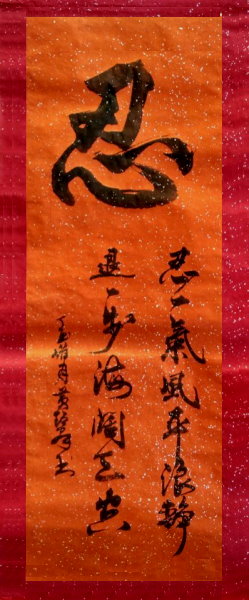 忍
忍一氣風平浪静
退一步海闊天空